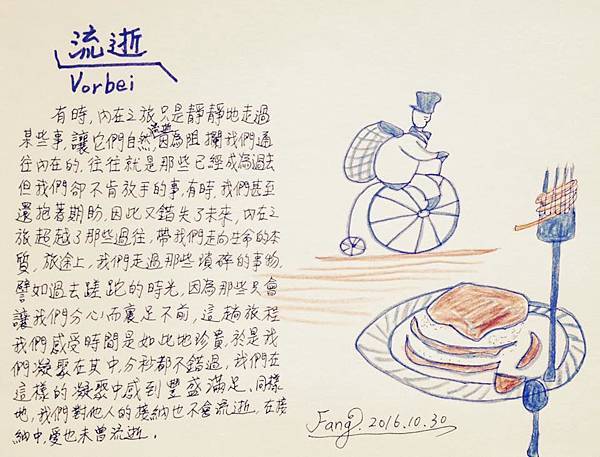 流逝
Vorbei
有時，內在之旅只是靜靜地走過
某些事，讓它們自然流逝因為阻攔我們通
往內在的，往往就是那些已經成為過去
但我們卻不肯放手的事，有時我們甚至
還抱著期盼，因此又錯失了未來，內在之
旅超越了那些過往，帶我們走向生命的本
質，旅途上，我們走過那些瑣碎的事物，
譬如過去蹉跎的時光，因為那些只會
讓我們分心而裹足不前，這趟旅程
我們感受時間是如此地珍貴，於是我
們凝聚在其中，分秒都不錯過，我們在
這樣的凝聚中感到豐盛滿足，同樣
地，我們對他人的接納也不會流逝，在接
納中，愛也未曾流逝。
Fang. 2016.10.30